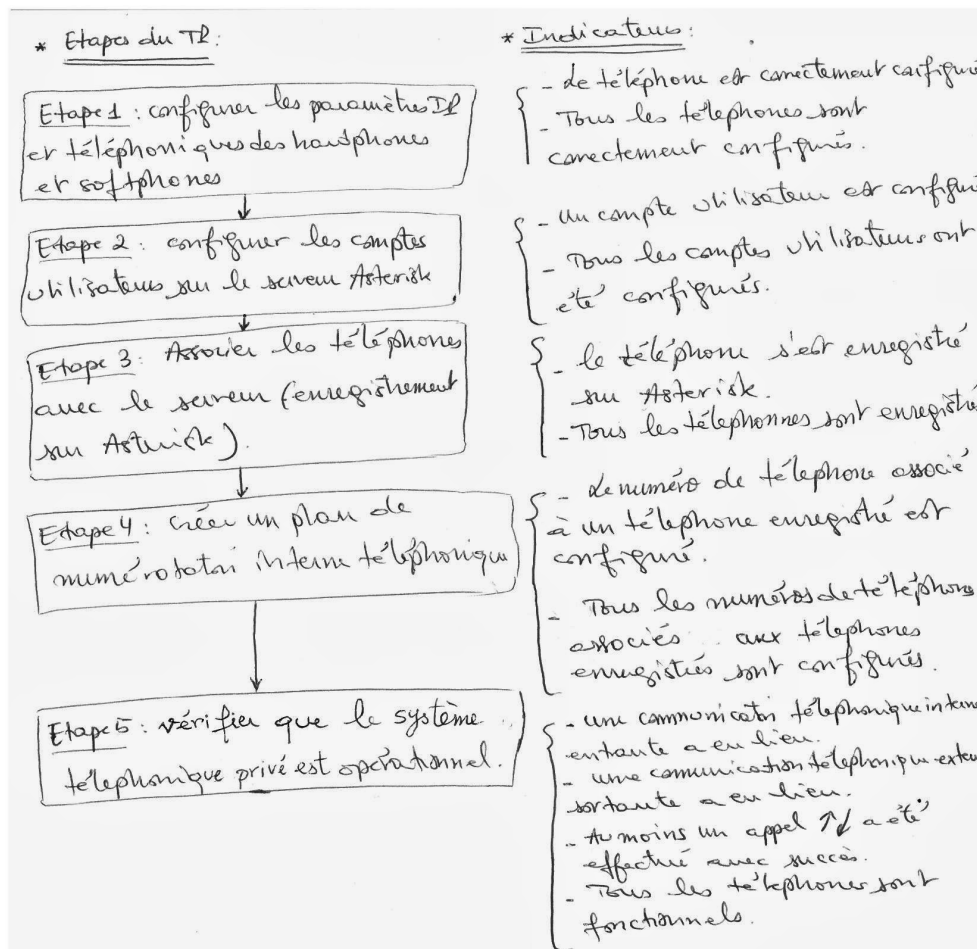 * Etapes du TP:
Etape 1 : configurer les paramètres IP
et téléphoniques des hardphones
et softphones
Etape 2 : configurer les comptes
utilisateurs sur le serveur Asterisk
Etape 3 : Associer les téléphones
avec le serveur (enregistrement
sur Asterisk).
Etape 4 : créer un plan de
numérotation interne téléphonique
Etape 5 : vérifier que le système
télephonique privé est opérationnel.
* Indicateurs :
- Le téléphone est correctement configuré
- Tous les télephones sont
correctement configurés.
- Un compte utilisateur est configuré
- Tous les comptes utilisateurs ont
été configurés.
- le téléphone s'est enregistré
sur Asterisk.
- Tous les télephonnes sont enregistrés
- Le numéro de télephone associé
à un télephone enregistré est
configuré.
- Tous les numéros de télephone
associés aux télephones
enregistrés sont configurés.
- une communication télephonique interne
entrante a eu lieu.
- une comunication télephonique externe
sortante a eu lieu.
- Au moins un appel ↑↓ a été
effectué avec succès.
- Tous les télephones sont
fonctionnels.